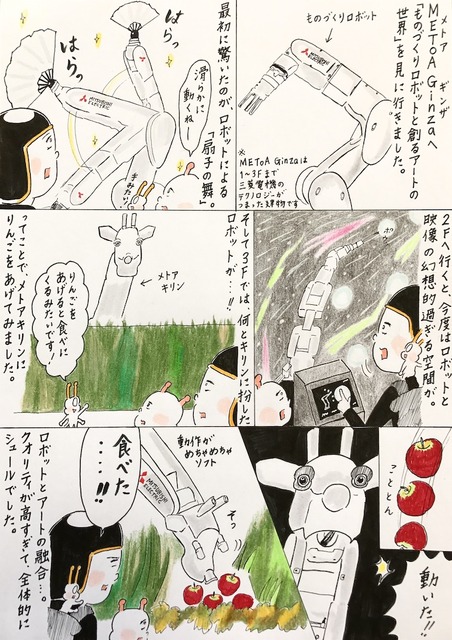 メトア　ギンザ
METoA Ginzaへ
「ものづくりロボットと創るアートの
世界」を見に行きました。
ものづくりロボット
MITSUBISHI ELECTRIC
※
METoA Ginzaは
1〜3Fまで
三菱電機の
テクノロジーが
つまった建物です
最初に驚いたのが、ロボットによる
「扇子の舞」。
はらっ
はらっ
MITSUBISHI ELECTRIC
滑らかに
動くねー
2Fへ行くと、今度はロボットと
映像の幻想的過ぎる空間が。
ポウ
そして3Fでは、何とキリンに扮した
ロボットが…!!
メトア
キリン
りんごを
あげると食べに
くるみたいです!
ってことで、メトアキリンに
りんごをあげてみました。
ことん
動いた!!
動作が
めちゃめちゃ
ソフト
MITSUBISHI ELECTRIC
そっ
食べた
・・・・!!
ロボットとアートの融合…。
クオリティが高すぎて、全体的に
シュールでした。